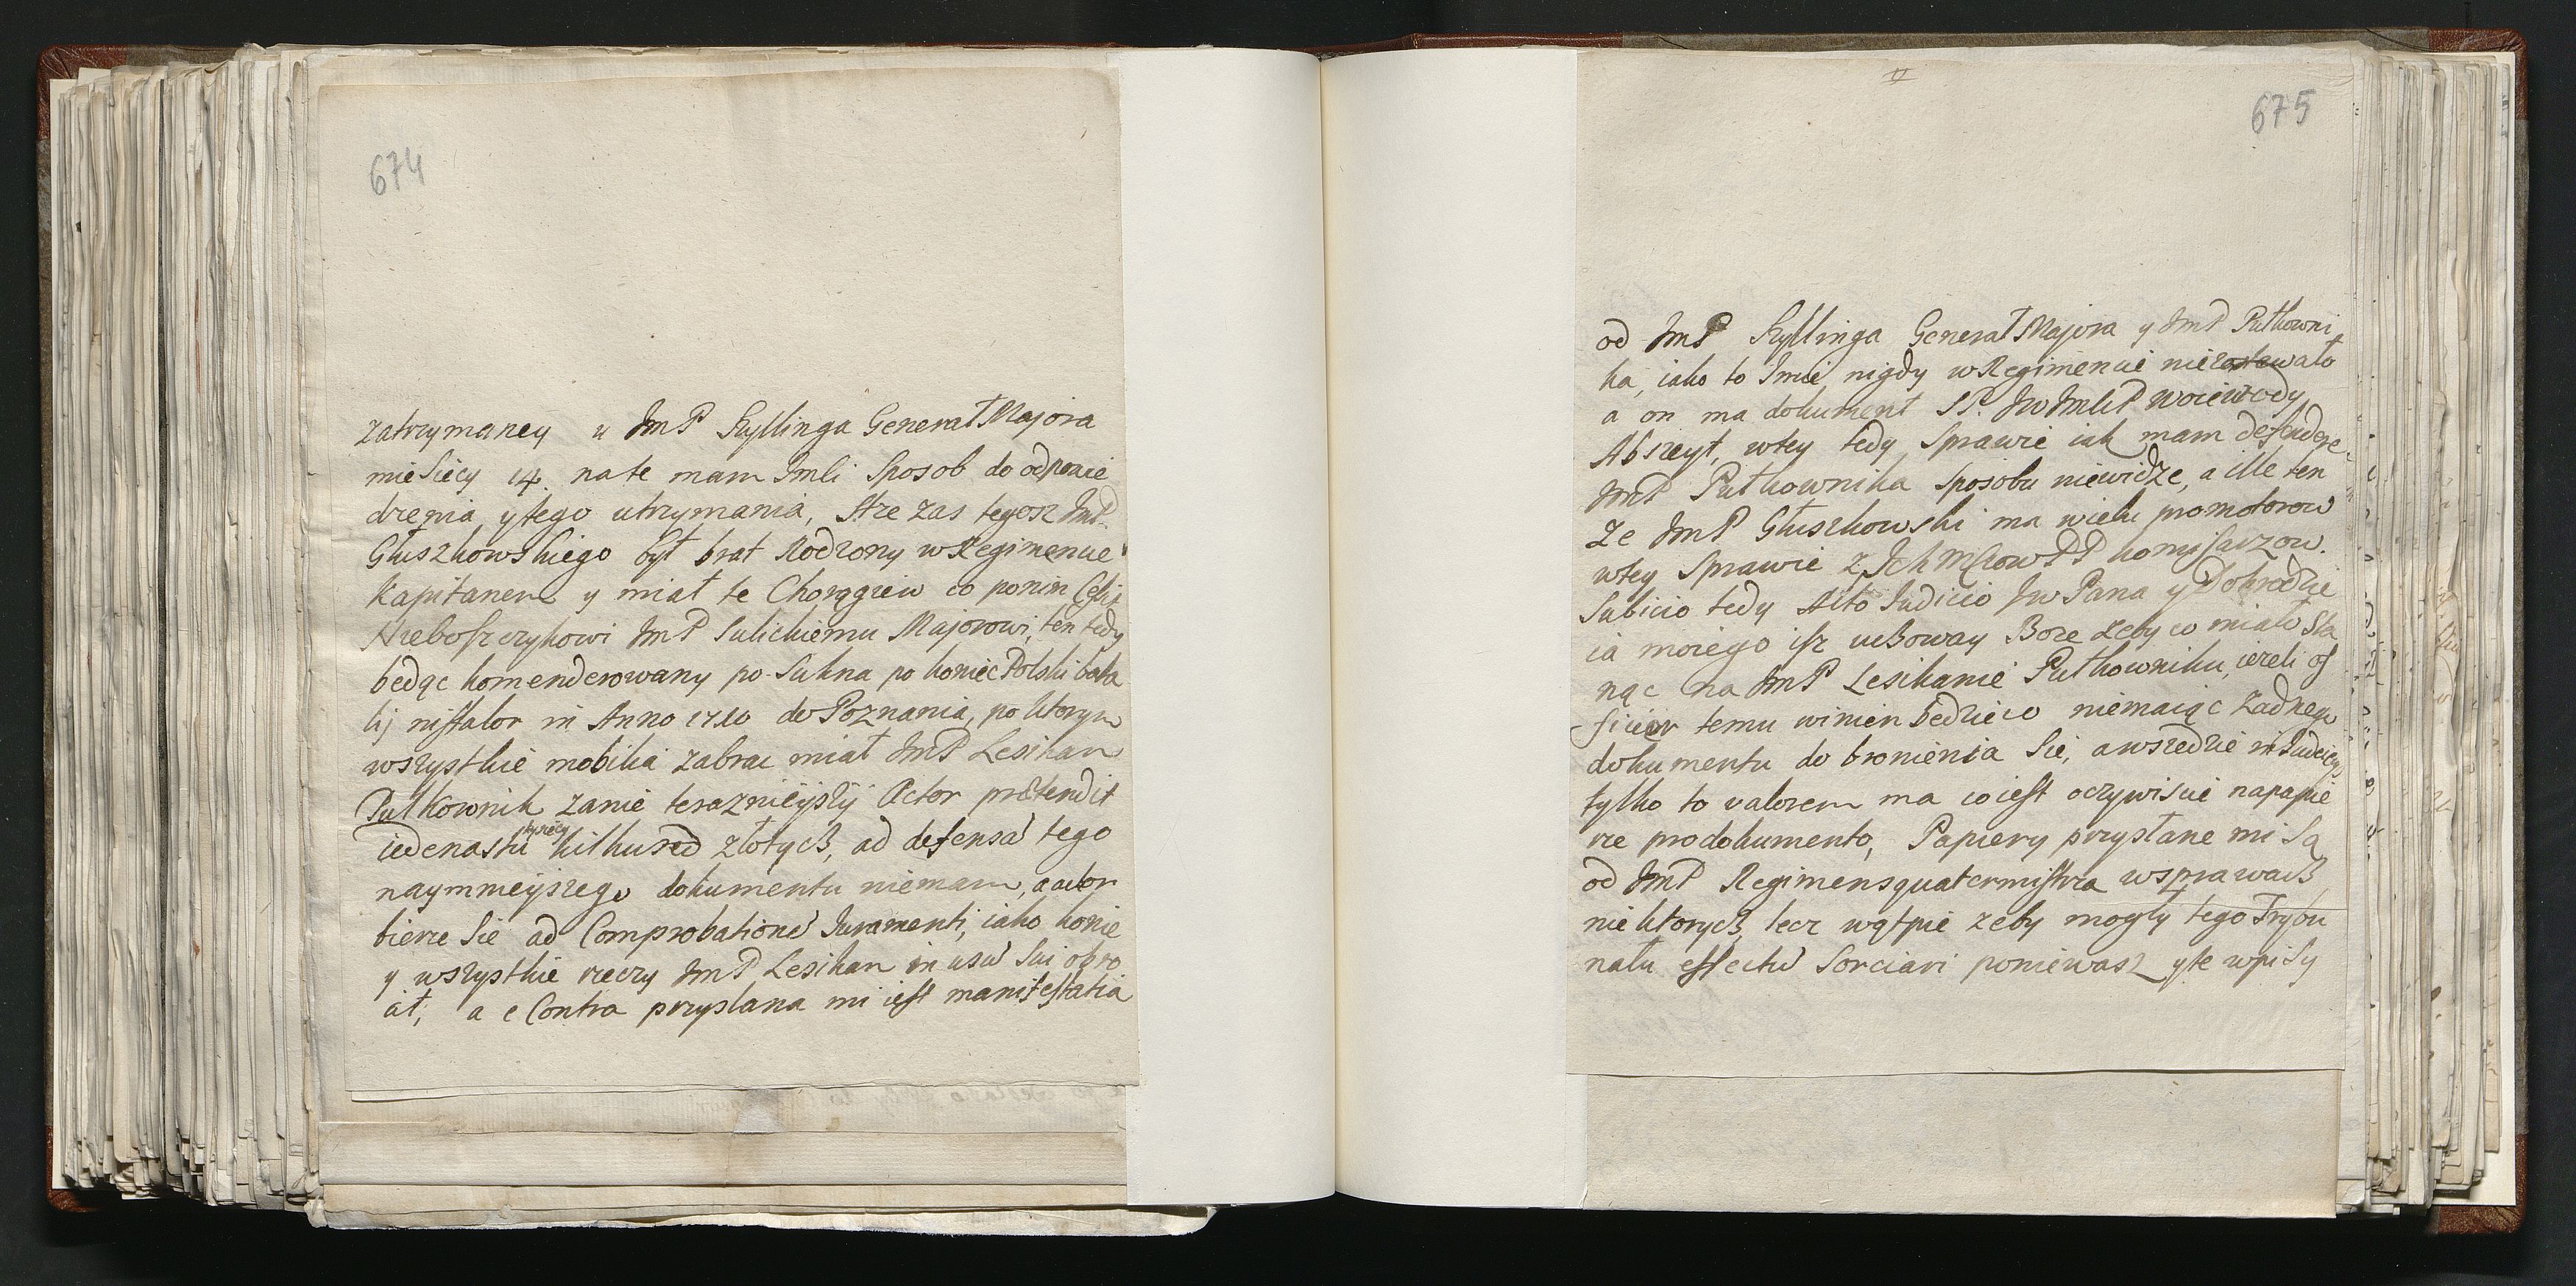 674
zatrzymaney u JmP Kyllinga Generał Majora
miesięcy 14. na te mam Jmści sposob do odpowie
dzenia, y tego utrzymania, Aże zas tegosz JmP.
Głuszkowskiego był brat Rodzony w Regimencie
Kapitanem y miał te Chorągiew co po nim
Nieboszczykowi JmP Sulickiemu Majorowi, ten tedy
będąc komenderowany po Sukna po koniec Polski
in Anno 1710 do Poznania, po ktorym
wszystkie mobilia zabrac miał JmP Lesikan
Pułkownik zanie teraznieyszy Actor prætendit
iedenastu tysięcy kilkuset złotych, ad defensã tego
naymnieyszego dokumentu niemam, a actor
bierze Sie ad Comprobationẽ Juramenti, iako konie
y wszystkie rzeczy JmP Lesikan in usũ Sui obro
ił, a e Contra przysłana mi iest manifestatia
675
od JmP Kyllinga Generał Majora y JmP Pułkowni
ka, iako to Jmie, nigdy w Regimencie niezostawało
a on ma dokument SP. JWJmści P Woiewody
Abszeyt, w tey tedy Sprawie iak mam defendere
JmP Pułkownika sposobu niewidze, a ille ten
Ze JmP Głuszkowski ma wielu promotorow
w tey Sprawie z Ich MCiow PP komisarzow.
Subicio tedy Alto Judicio Jw Pana y Dobrodzie
ia moiego isz uchoway Boze zeby co miało Sta
nąc na JmP Lesikanie Pułkowniku, iezeli of
ficier temu winien będzie co niemaiąc Zadnego
dokumentu do bronienia Sie, a wszedzie in Judicijs
tylko to valorem ma co iest oczywiscie na papie
rze pro dokumento, Papiery przysłane mi Są
od JmP Regimensquatermistrza w sprawach
niektorych, lecz wątpie zeby mogły tego Trybu
nału effectũ Sorciari poniewasz y te wpisy